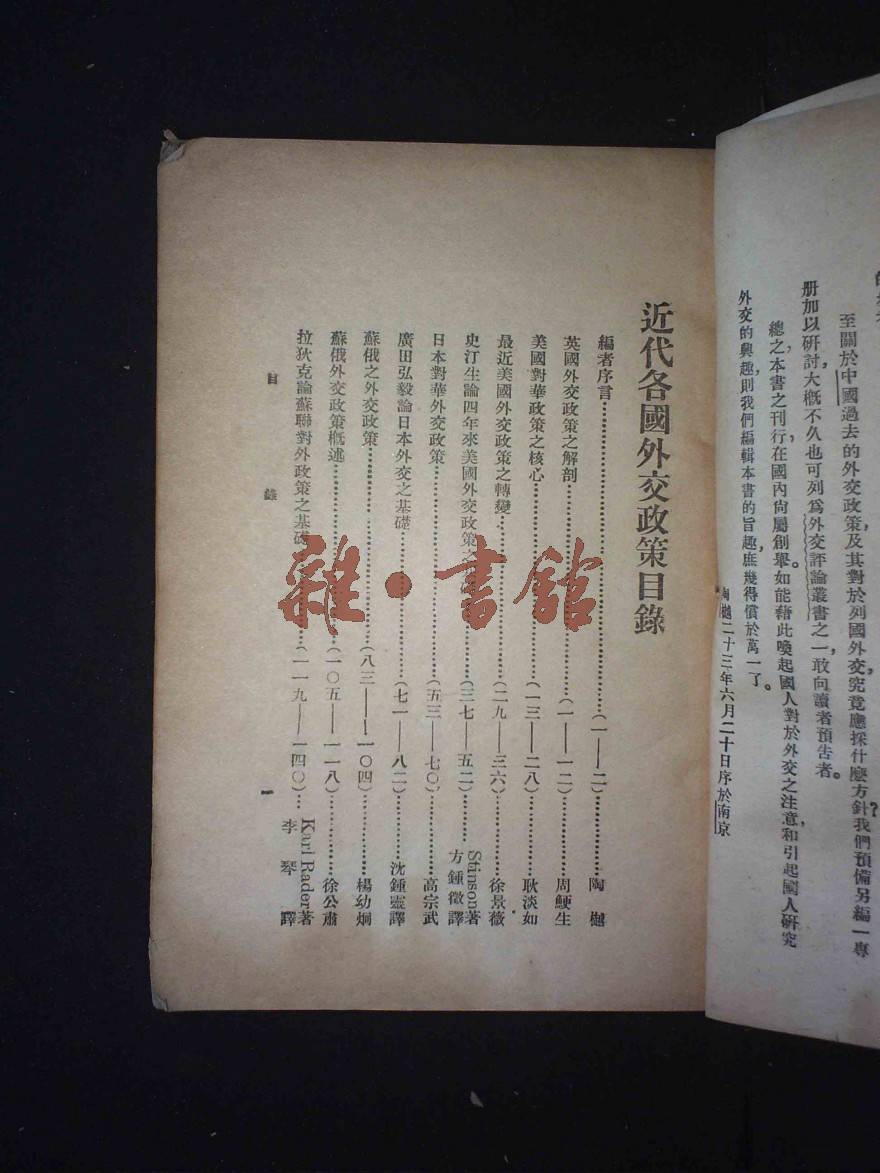 至關於中國過去的外交政策,及其對於列國外交究竟應採什麼方針?我們預備另編一專
册加以研討,大概不久也可列爲外交評論叢書之一,敢向讀者預告者。
總之,本書之刊行,在國內尙屬創舉。如能藉此喚起國人對於外交之注意,和引起國人研究
外交的興趣,則我們編輯本書的旨趣,庶幾得償於萬一了。
陶樾二十三年六月二十日序於南京
近代各國外交政策目錄
編者序言……(一——二)……陶樾
英國外交政策之解剖……(一——一二)……周鯁生
美國對華政策之核心……(一三——二八)……耿淡如
最近美國外交政策之轉變……(二九——三六)……徐景薇
史汀生論四年來美國外交政策之……(三七——五二)……Stinson著
方鍾徵譯
日本對華外交政策……(五三——七〇)……高宗武
廣田弘毅論日本外交之基礎……(七一——八二)……沈鍾靈譯
蘇俄之外交政策……(八三——一〇四)……楊幼炯
蘇俄外交政策概述……(一〇五——一一八)……徐公肅
拉狄克論蘇聯對外政策之基礎……(一一九——一四〇)……Karl Rader著
李琴譯
目錄
一
雜·書館